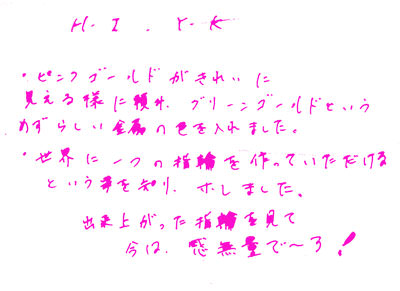 H・I . Y・K
・ピンクゴールドがきれいに
見える様に横に、グリーンゴールドという
めずらしい金属の色を入れました。
・世界に一つの指輪を作っていただける
という事を知り、
しました。
出来上がった指輪を見て
今は、感無量で〜す!